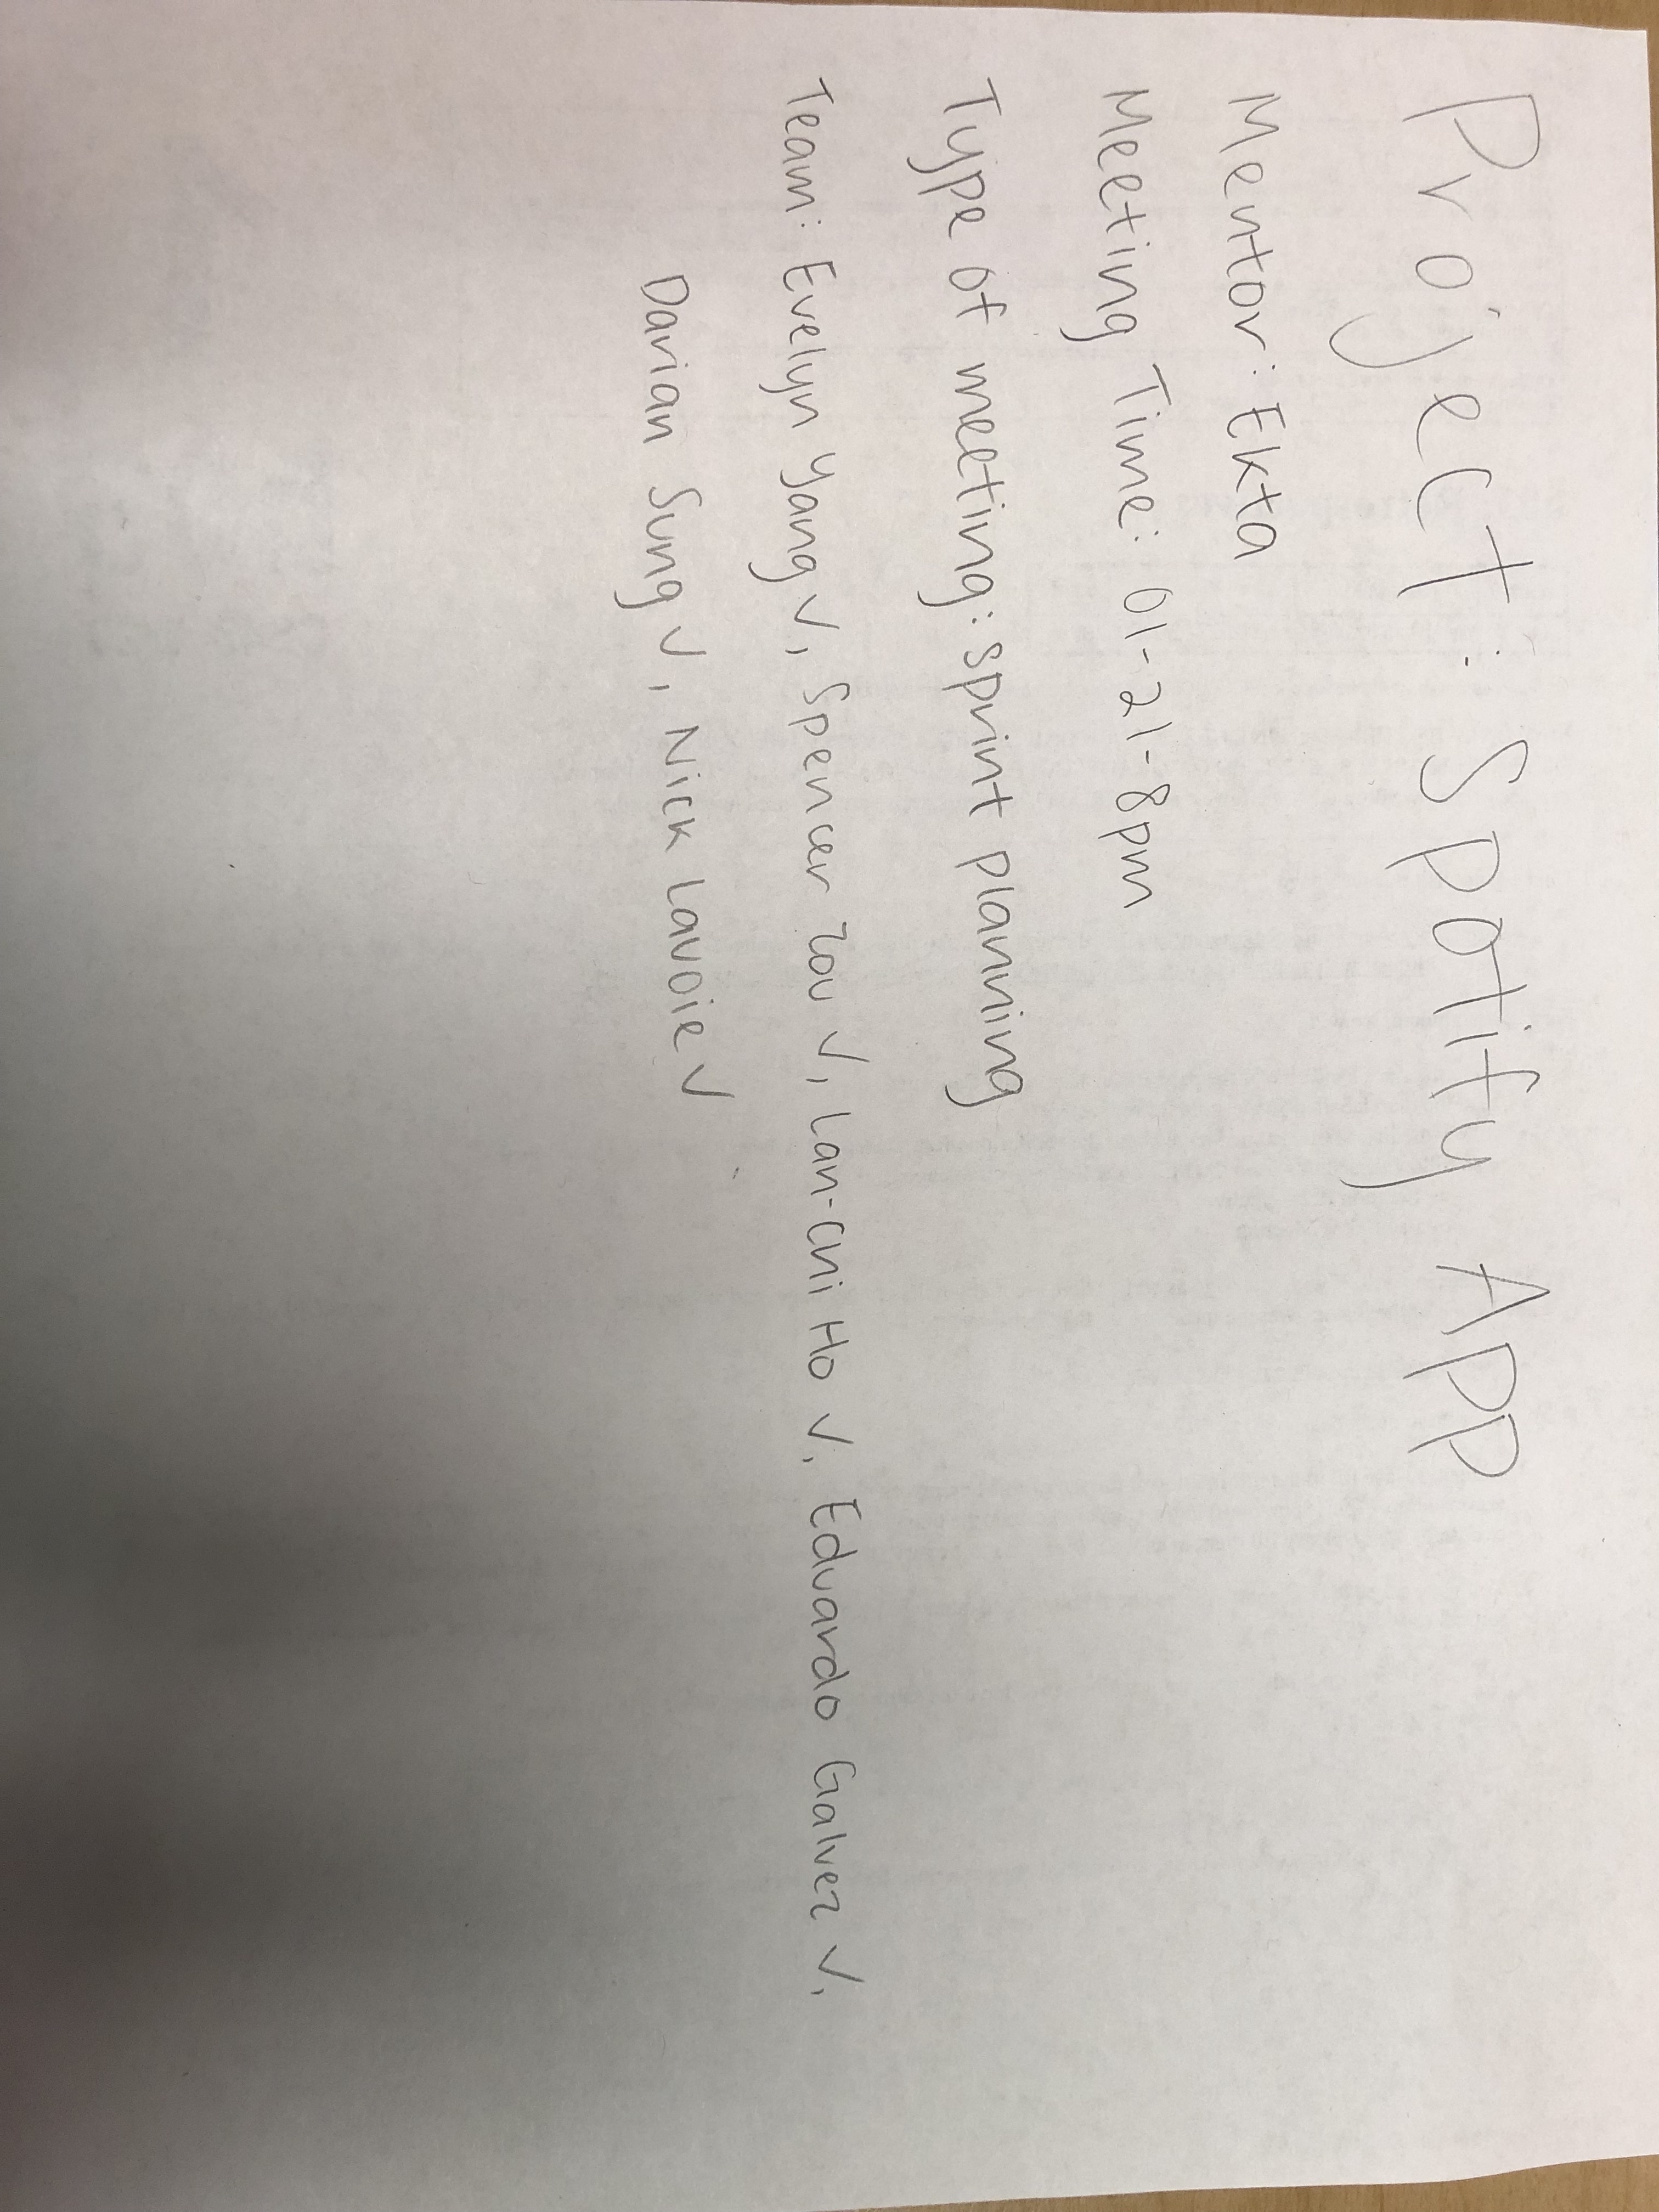 Project: Spotify App
Mentor: Ekta
Meeting Time: 01-21-8pm
Type of meeting: sprint planning
Team: Evelyn Yang ✓, Spencer Zou ✓, Lan-Chi Ho ✓, Eduardo Galvez ✓,
Darian Sung ✓, Nick Lavoie ✓